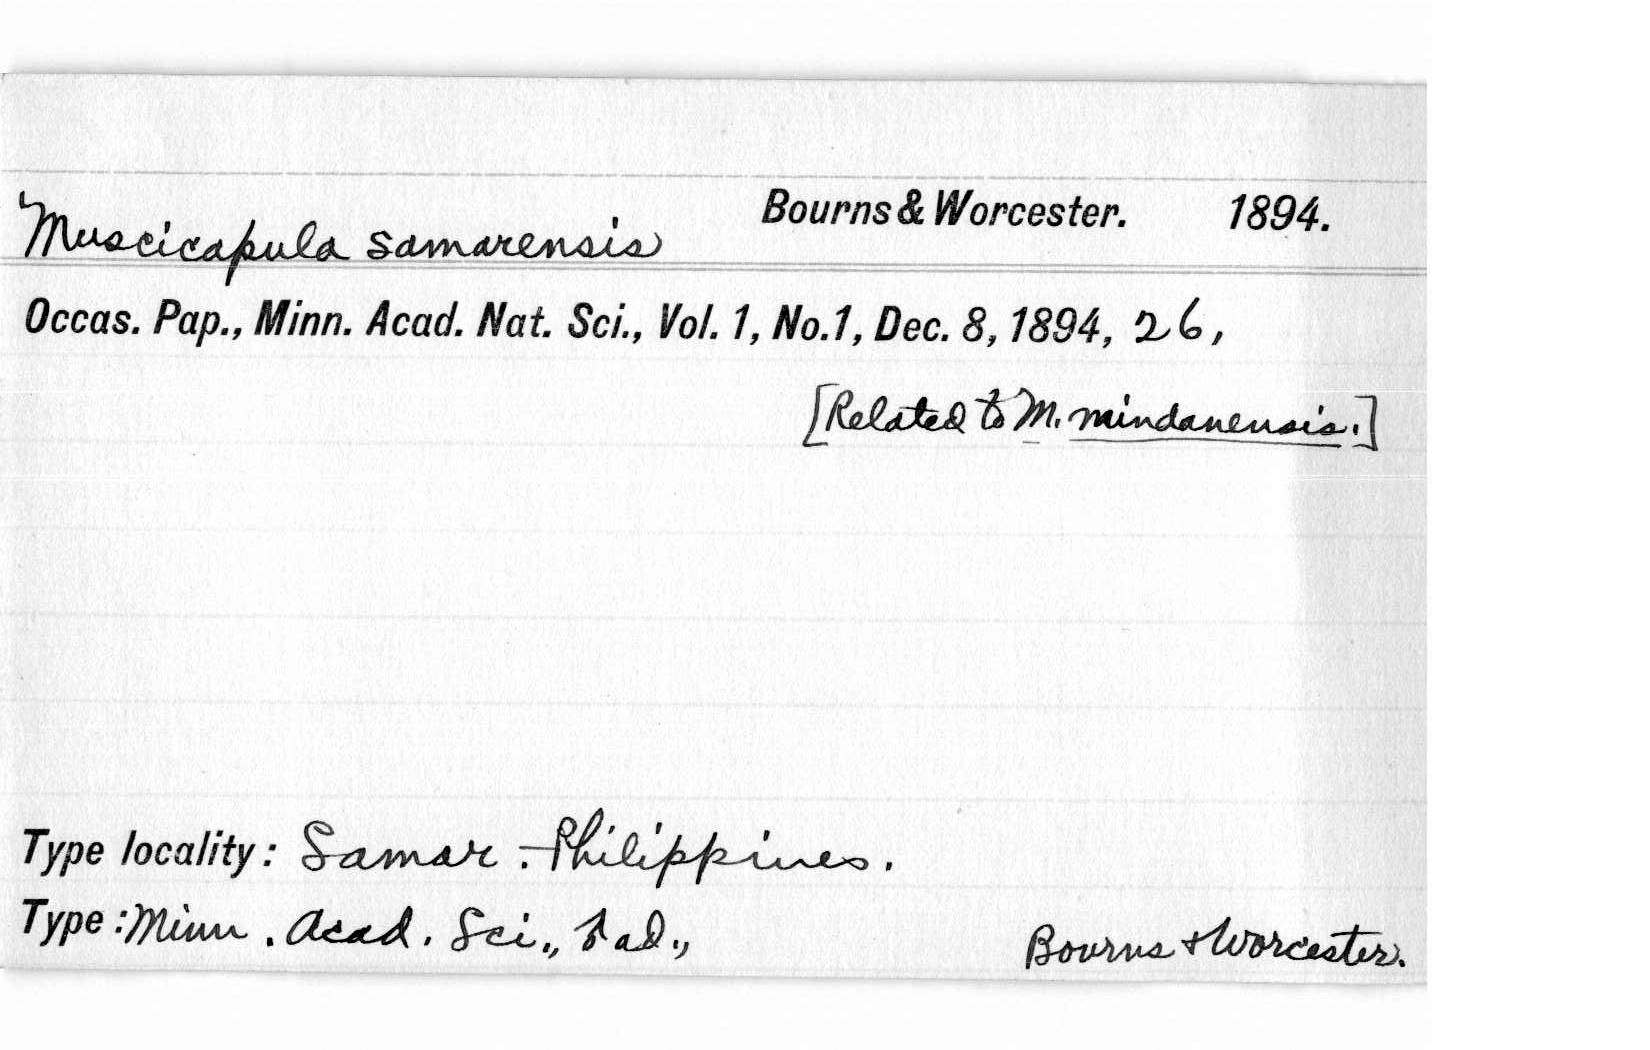 Muscicapula samarensis Bourns & Worcester. 1894.
Occas. Pap., Minn. Acad. Nat. Sci., Vol. 1, No.1, Dec. 8, 1894, 26,
[Related to M. mindanensis.]
Type locality: Samar. Philippines.
Type: Minn. Acad. Sci., ♂ ad., Bourns & Worcester.